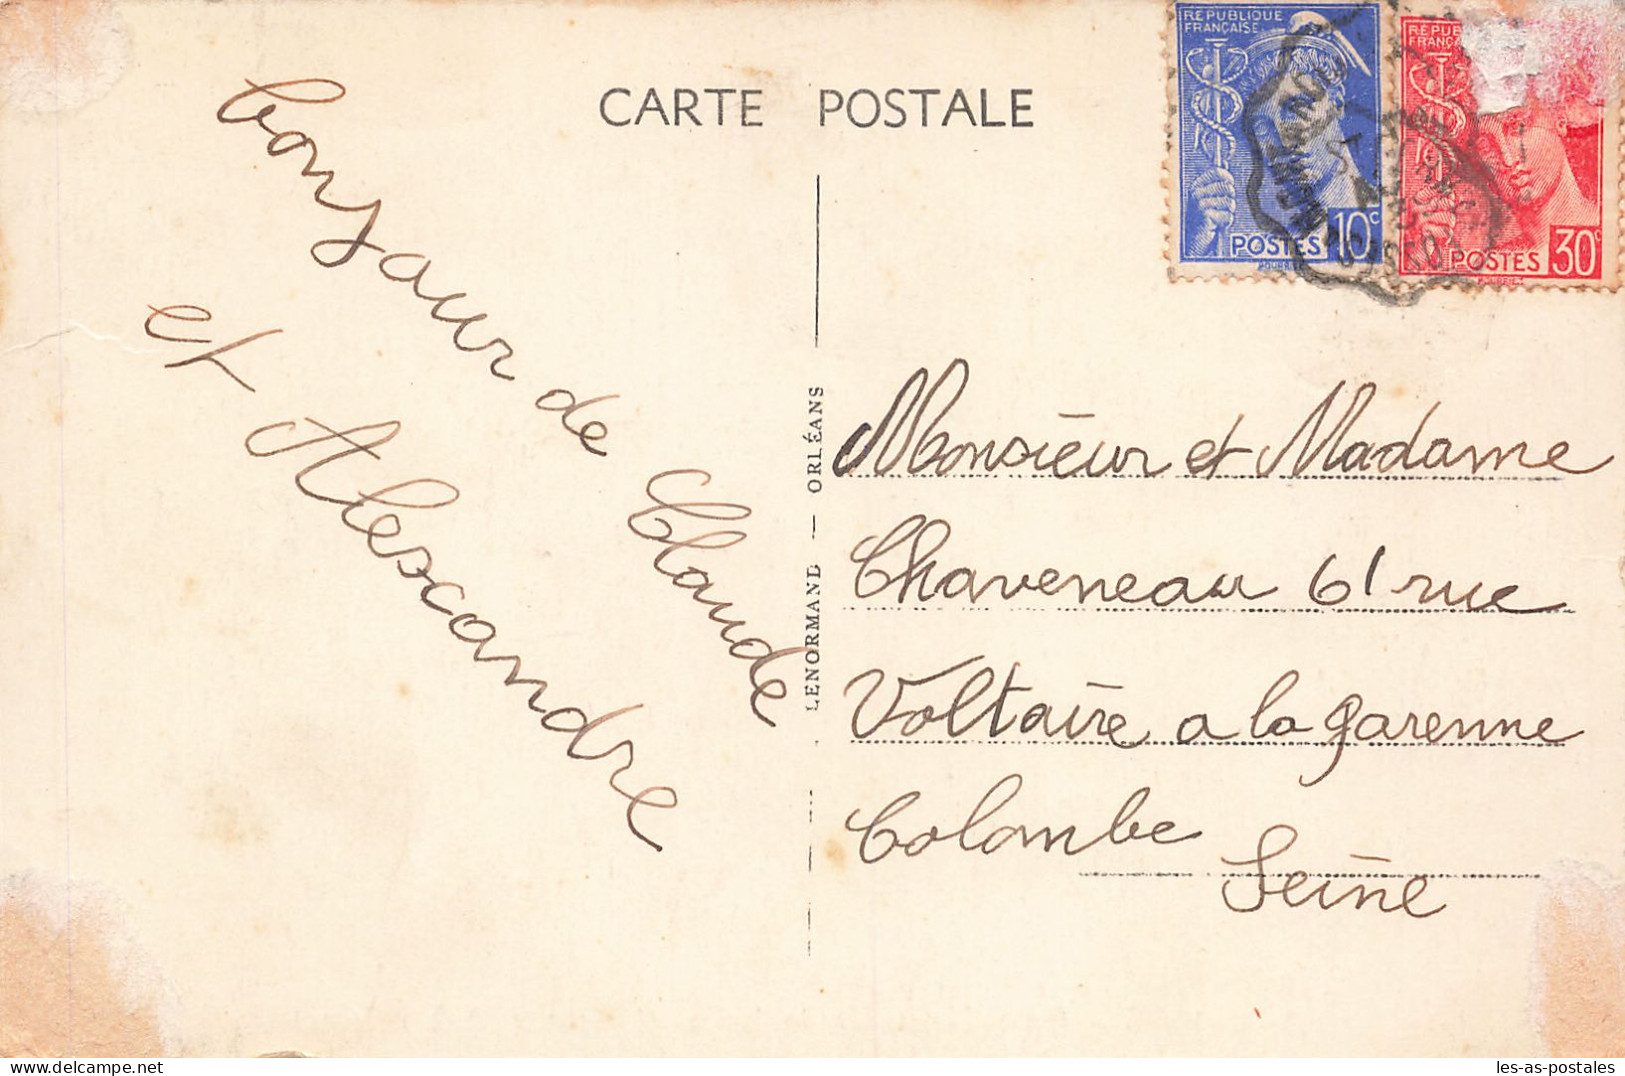 CARTE POSTALE
bonjour de Claude
et Alexandre
LENORMAND — ORLÉANS
REPUBLIQUE
FRANÇAISE
POSTES 10c
REPU
FRANÇA
POSTES 30c
Monsieur et Madame
Chaveneau 61 rue
Voltaire a la garenne
Colombe
Seine
les-as-postales